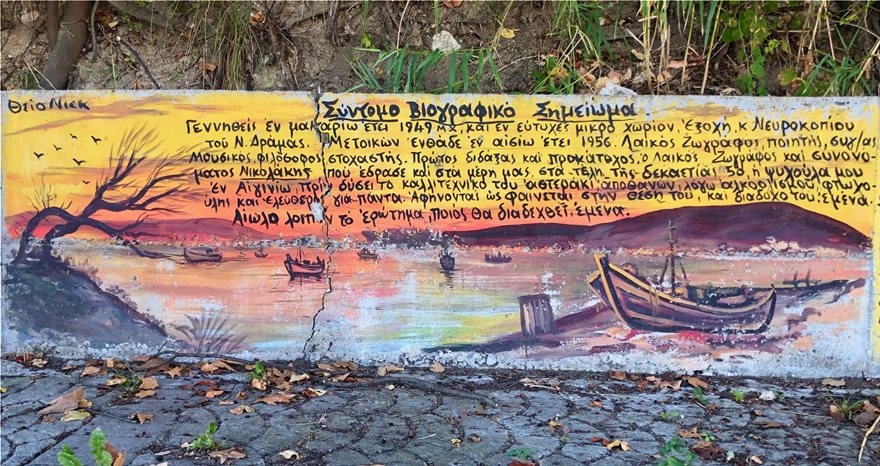 Θείο Νick
Σύντομο Βιογραφικό Σημείωμα
Γεννηθείς εν μακαρίω έτει 1949 μχ, και εν ευτυχές μικρό χωρίον, Έξοχή, κ Νευροκοπίου
τού Ν. Δράμας. Μετοικών ένθάδε έν αισίω έτει 1956. Λαϊκός Ζωγράφος, ποιητής, συχ/ας
Μουσικός, φιλόσοφος στοχαστής. Πρώτος διδάξας και προκάτοχος, ο Λαϊκός Ζωγράφος και συνονο-
ματος Νικολάκης πού εδρασε και στα μέρη μας, στα τέλη της δεκαετίας 50, ή ψυχούλα μου
έν Αιγινίω πρίν δύσει το καλλιτεχνικό του αστεράκι, αποθανών, λόγω αλκοολισμού, φτωχο-
ύλης και ελεύθερος για πάντα. Αφήνοντας ώς φαίνεται στην θέση του, και διάδοχό του, έμένα.
Αίωλο λοιπόν το έρώτημα, ποιός θα διαδεχθεί, έμένα.